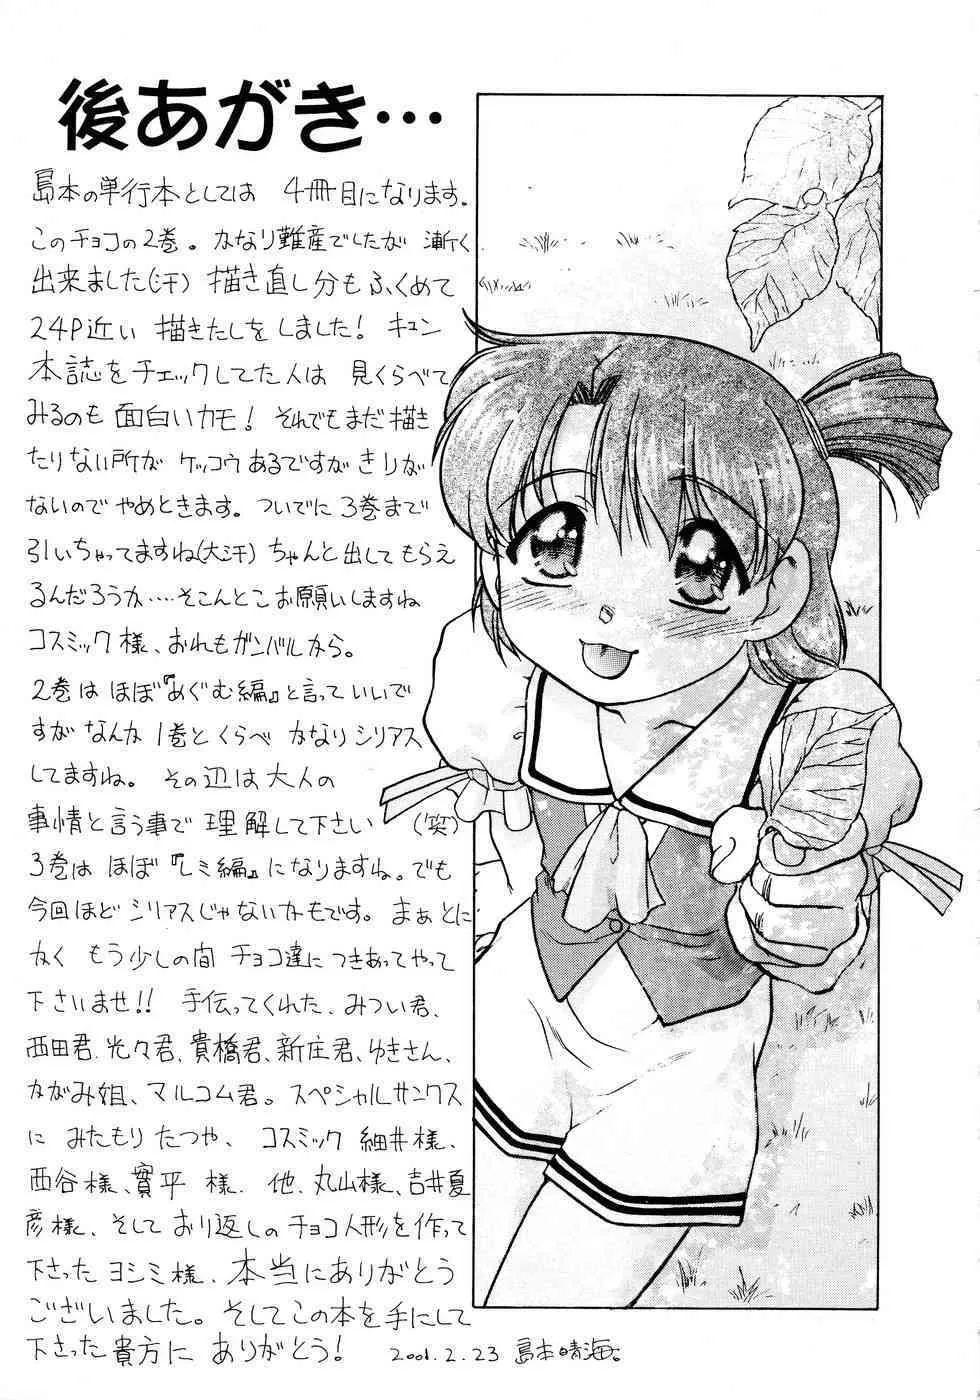 後あがき…
島本の単行本としては 4冊目になります。
このチョコの2巻。かなり難産でしたが 漸く
出来ました(汗) 描き直し分もふくめて
24P近い 描きたしをしました! キュン
本誌をチェックしてた人は 見くらべて
みるのも 面白いカモ! それでもまだ描き
たりない所が ケッコウあるですがきりが
ないのでやめときます。ついでに3巻まで
引いちゃってますね(大汗) ちゃんと出してもらえ
るんだろうか‥‥そこんとこお願いしますね
コスミック様、おれもガンバルから。
2巻は ほぼ『めぐむ編』と言っていいで
すが なんか 1巻とくらべ かなりシリアス
してますね。 その辺は大人の
事情と言う事で 理解して下さい (笑)
3巻は ほぼ『レミ編』になりますね。でも
今回ほど シリアスじゃないかもです。まぁとに
かく もう少しの間 チョコ達に つきあってやって
下さいませ!! 手伝ってくれた、みつい君、
西田君、光々君、貴橋君、新庄君、ゆきさん、
ながみ姐、マルコム君。スペシャルサンクス
に みたもりたつや、コスミック 細井様、
西谷様、實平 様、他、丸山様、吉井夏
彦様、そして おり返しの チョコ人形を作って
下さった ヨシミ様、本当にありがとう
ございました。そしてこの本を手にして
下さった 貴方に ありがとう!
2001.2.23 島本晴海。